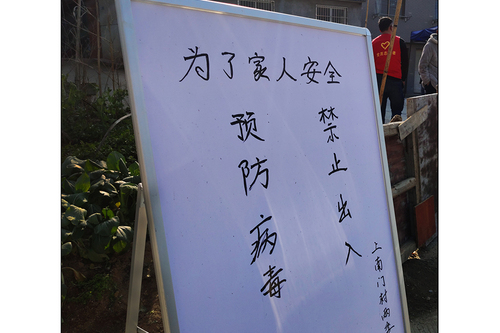 为了家人安全
预防病毒
禁止出入
上南门村两委